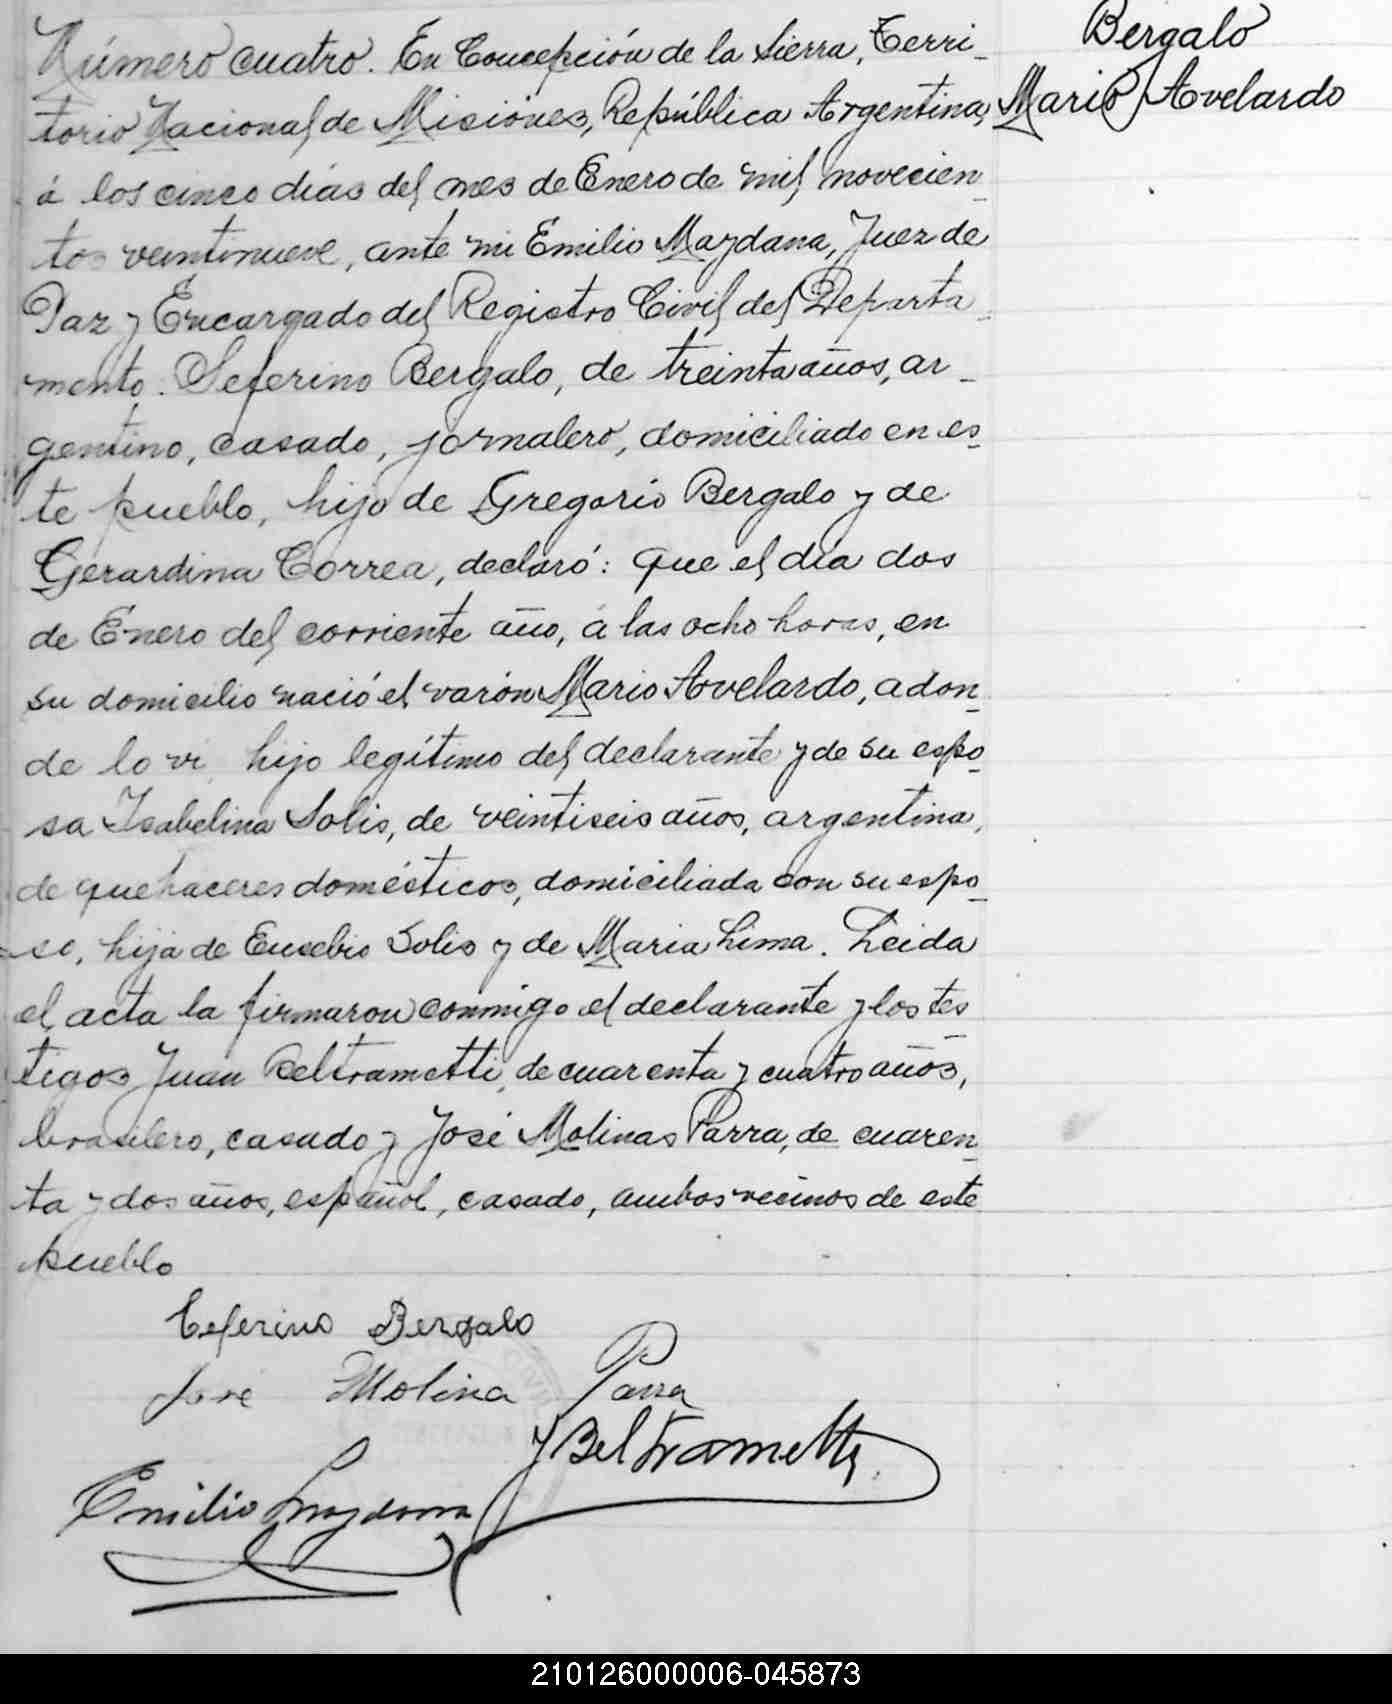 Número cuatro. En Concepción de la Sierra, Terri-
torio Nacional de Misiones, República Argentina,
á los cinco días del mes de Enero de mil novecien-
tos veintinueve, ante mi Emilio Maydana, Juez de
Paz y Encargado del Registro Civil del Departa-
mento. Seferino Bergalo, de treinta años, ar-
gentino, casado, jornalero, domiciliado en es-
te pueblo, hijo de Gregorio Bergalo y de
Gerardina Correa, declaró: que el día dos
de Enero del corriente año, á las ocho horas, en
su domicilio nació el varón Mario Avelardo, adon-
de lo vi, hijo legítimo del declarante y de su espo-
sa Isabelina Solis, de veintiseis años, argentina,
de quehaceres domésticos, domiciliada con su espo-
so, hija de Eusebio Solis y de Maria Lima. Leida
el acta la firmaron conmigo el declarante y los tes-
tigos Juan Beltrametti, de cuarenta y cuatro años,
brasilero, casado y José Molinas Parra, de cuaren-
ta y dos años, español, casado, ambos vecinos de este
pueblo
Ceferino Bergalo
José Molina Parra
J Beltrametti
Emilio Maydana
Bergalo
Mario Avelardo
210126000006-045873